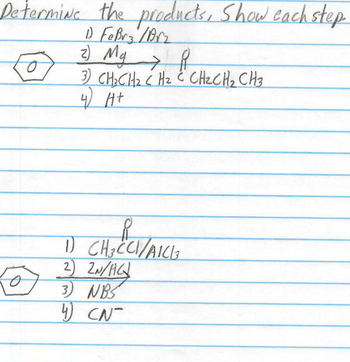 Determine the products, Show each step
1) FeBr3 /Br2
2) Mg
O
3) CH3CH2CH2CCH2CH2CH3
4) H+
O
1) CH3CCl/AlCl3
2) Zn/HCl
3) NBS
4) CN-